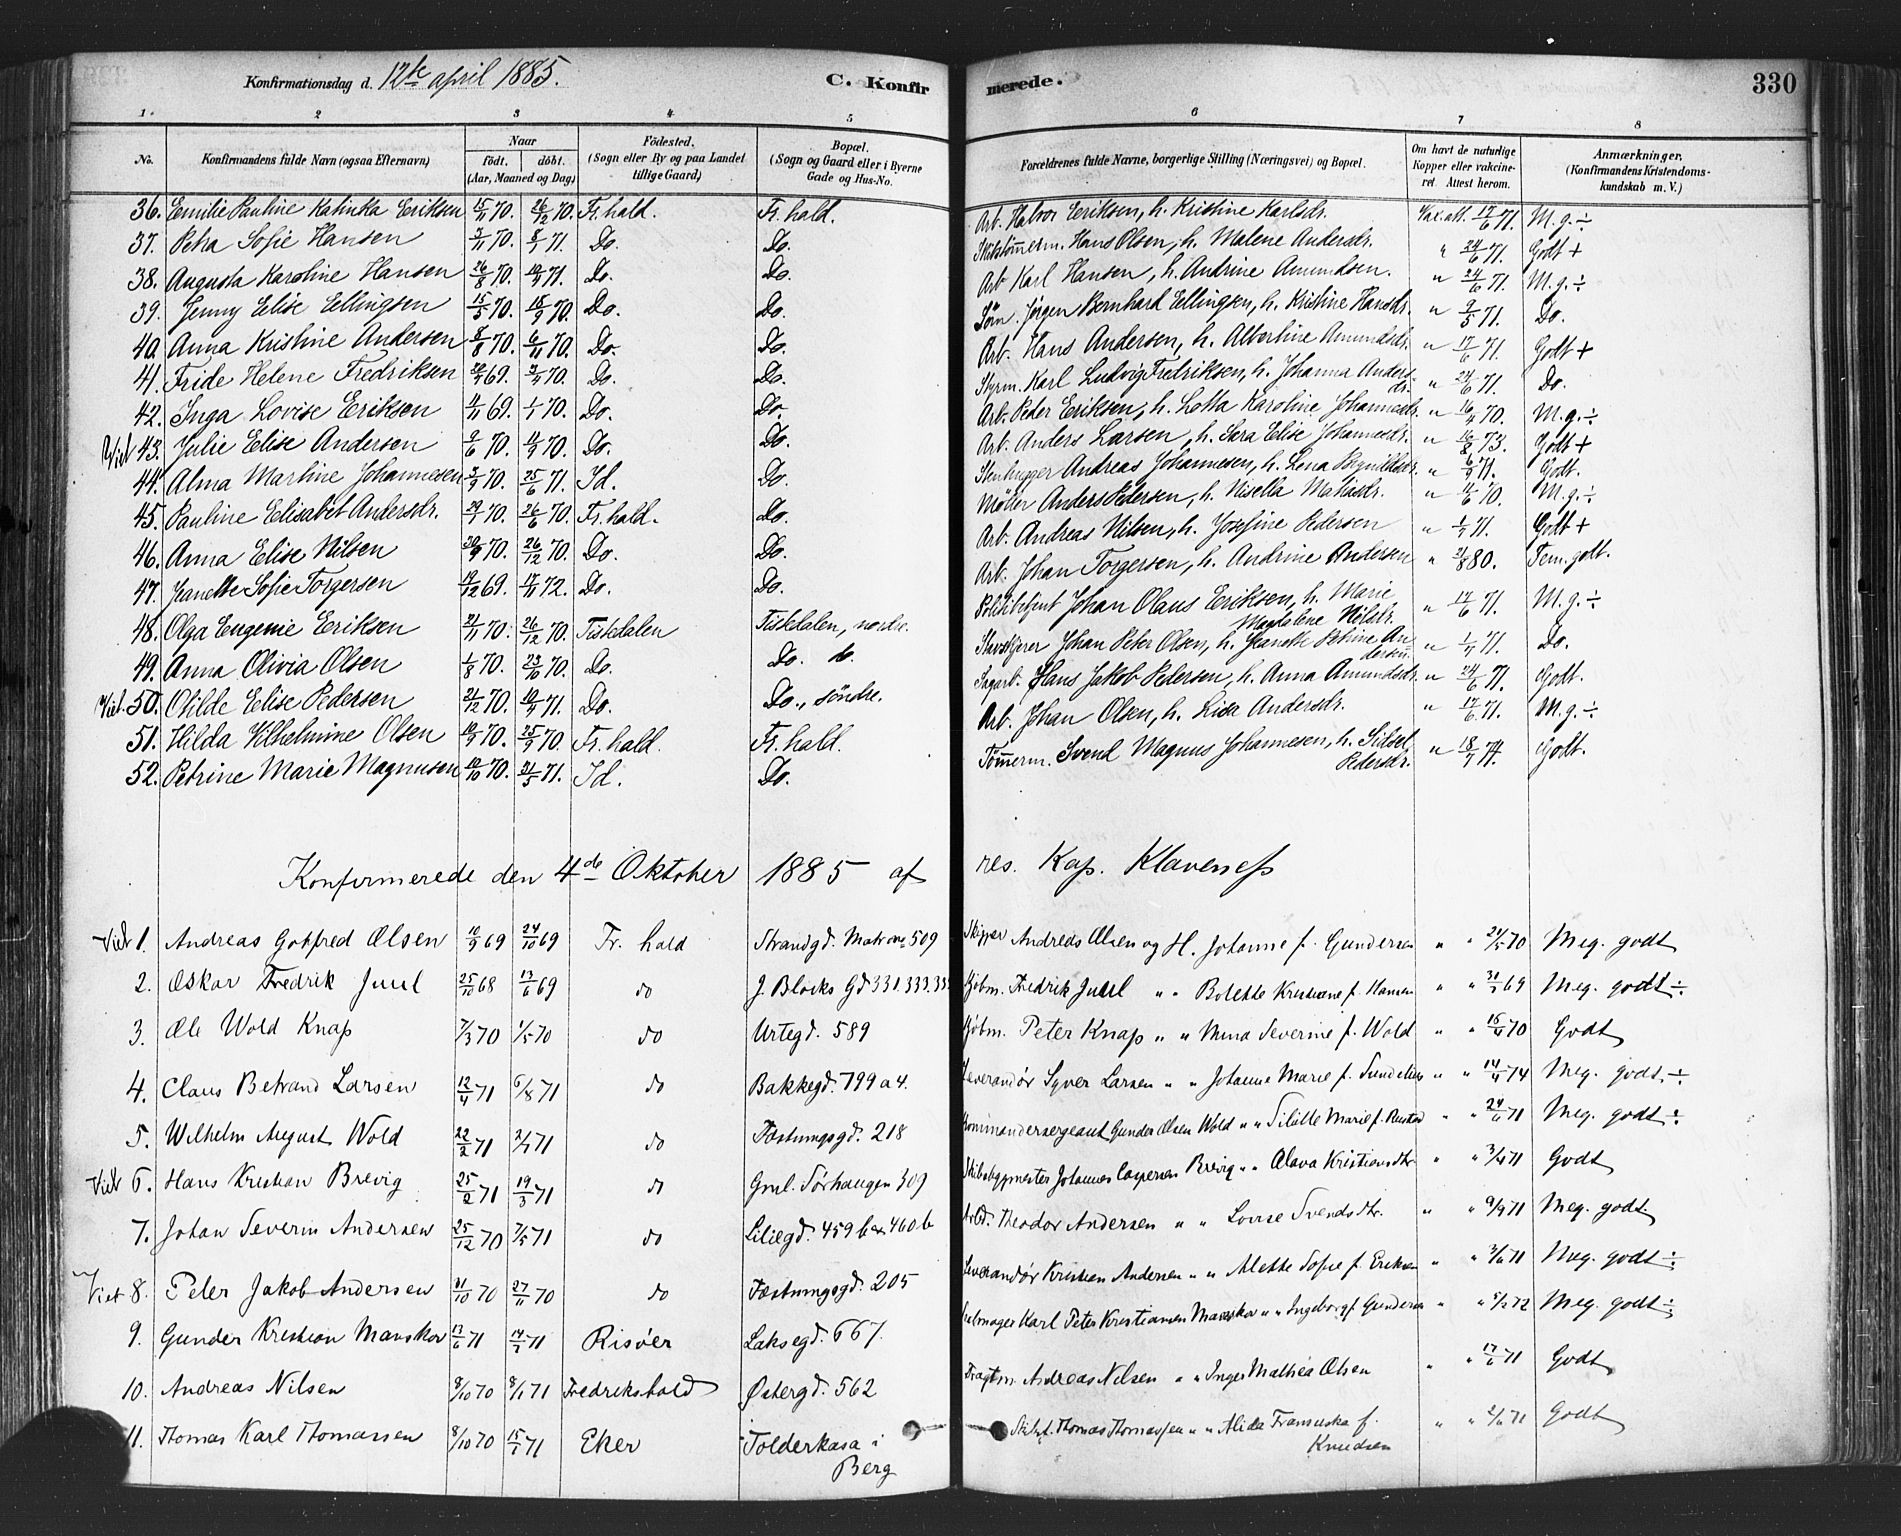 Konfirmationsdag d. 12te april 1885. C. Konfirmerede. 330
1. 2 3 4 5 6 7 8
No. Konfirmandens fulde Navn (ogsaa Efternavn) Naar født. døbt. (Aar, Maaned og Dag) Fødested. (Sogn eller By og paa Landet tillige Gaard) Bopæl. (Sogn og Gaard eller i Byerne Gade og Hus-No. Forældrenes fulde Navne, borgerlige Stilling (Næringsvei) og Bopæl. Om havt de naturlige Kopper eller vakcineret. Attest herom. Anmærkninger. (Konfirmandens Kristendomskundskab m. V.)
36. Emilie Pauline Katinka Eriksen 15/11 70. 26/12 70. Fr.hald. Fr.hald. Arb. Halvor Eriksen, h. Kristine Karlsdr. Vax.att. 17/6 71. M.g.÷
37. Petra Sofie Hansen 3/11 70. 8/1 71. Do. Do. Hans Olsen, h. Malene Andersdr. " 24/6 71. Godt +
38. Augusta Karoline Hansen 26/8 70. 71. Do. Do. Arb. Karl Hansen, h. Andrine Amundsen. " 24/6 71. M.g.÷
39. Jenny Elise Ellingsen 15/5 70. 18/9 70. Do. Do. Jørgen Bernhard Ellingsen, h. Kristine Hansdr. " 9/5 71. Do.
40. Anna Kristine Andersen 8/8 70. 6/11 70. Do. Do. Arb. Hans Andersen, h. Albertine Amundsdr. " 17/6 71. Godt +
41. Fride Helene Fredriksen 69. 70. Do. Do. Styrm. Karl Ludvig Fredriksen, h. Johanna Andersdr. " 24/6 71. Do.
42. Inga Lovise Eriksen 4/11 69. 1/1 70. Do. Do. Arb. Peder Eriksen, h. Lotta Karoline Johannesdr. " 70. M.g.÷
Viet 43. Julie Elise Andersen 9/6 70. 70. Do. Do. Arb. Anders Larsen, h. Sara Elise Johannesdr. " 16/8 73. Godt +
44. Alma Martine Johannesen 70. 25/6 71. Id. Do. Stenhugger Andreas Johannesen, h. Lena " 71. Godt.
45. Pauline Elisabet Andersdr. 70. 26/6 70. Fr.hald. Do. Møller Anders Pedersen, h. Nisella Matiasdr. " 70. M.g.÷
46. Anna Elise Nilsen 70. 26/12 70. Do. Do. Arb. Andreas Nilsen, h. Josefine Pedersen " 71. Godt +
47. Jeanette Sofie Torgersen 19/12 69. 17/11 72. Do. Do. Arb. Johan Torgersen, h. Andrine Andersen " 80. Tem. godt.
48. Olga Eugenie Eriksen 21/11 70. 26/12 70. Tistedalen Tistedalen, nordre. Politibetjent Johan Olaus Eriksen, h. Marie Magdalene Nilsdr. " 17/6 71. M.g.÷
49. Anna Olivia Olsen 1/8 70. 23/10 70. Do. Do. do. Johan Peter Olsen, h. Jeanette Petrine Andersen " 71. Do.
Viet. 50. Otilde Elise Pedersen 21/12 70. 71. Do. Do., søndre. Sagarb. Hans Jakob Pedersen, h. Anna Amundsdr. " 24/6 71. Godt.
51. Hilda Vilhelmine Olsen 70. 25/9 70. Fr.hald. Fr.hald. Arb. Johan Olsen, h. Lisa Andersdr. " 17/6 71. M.g.÷
52. Petrine Marie Magnusen 10/10 70. 21/5 71. Id. Do. Tømmerm. Svend Magnus Johannesen, h. Sidsel Pedersdr. " 18/7 74. Godt.
Konfirmerede den 4de Oktober 1885 af res. Kap. Klaveness
Viet 1. Andreas Gotfred Olsen 10/9 69 24/10 69 Fr. hald Strandgd. Matr. no 509 Skipper Andreas Olsen og H. Johanne f. Gundersen " " 24/5 70 Meg. godt
2. Oskar Fredrik Juul 25/10 68 13/6 69 do J. Blocks Gd 331.333.33 Kjøbm. Fredrik Juul " " Bolette Kristiane f. Hansen " " 69 Meg. godt ÷
3. Ole Wold Knap 7/3 70 1/5 70 do Urtegd. 589 Kjøbm. Peter Knap " " Mina Severine f. Wold " " 15/4 70 Godt
4. Claus Betrand Larsen 12/4 71 6/8 71 do Bakkegd. 799 a 4. Leverandør Syver Larsen " " Johanne Marie f. " " 14/4 74 Meg. godt. ÷
5. Wilhelm August Wold 22/2 71 2/7 71 do Fæstningsgd. 218 Kommandersergeant Gunder Olsen Wold " " Marie f. Rustad " " 24/6 71 Meg. godt ÷
Viet 6. Hans Kristian Brevig 25/2 71 19/3 71 do Gml. Sørhaugen 309 Skibsbygmester Johannes Caspersen Brevig " " Olava Kristiansdtr " " 71 Godt
7. Johan Severin Andersen 25/12 70 7/5 71 do Liliegd. 459 b & 460 b Theodor Andersen " " Lovise Svendsdtr. " " 9/9 71 Meg. godt
Viet 8. Peter Jakob Andersen 31/10 70 27/11 70 do Fæstningsgd. 205 Leverandør Kristian Andersen " " Alette Sofie f. Eriksen " " 71 Meg. godt ÷
9. Gunder Kristian Manskov 13/6 71 71 Risøer Laksegd. 667. Karl Peter Kristiansen Manskov " " Ingeborg f. Gundersen " " 72 Meg. godt ÷
10. Andreas Nilsen 8/10 70 8/1 71 Fredrikshald Østergd. 562 Fragtm. Andreas Nilsen " " Inger Mathea Olsen " " 17/6 71 Godt
11. Thomas Karl Thomassen 8/10 70 15/1 71 Eker Tolderkasa i Berg Thomas Thomassen " " Alida Franciska f. Knudsen " " 71 Godt